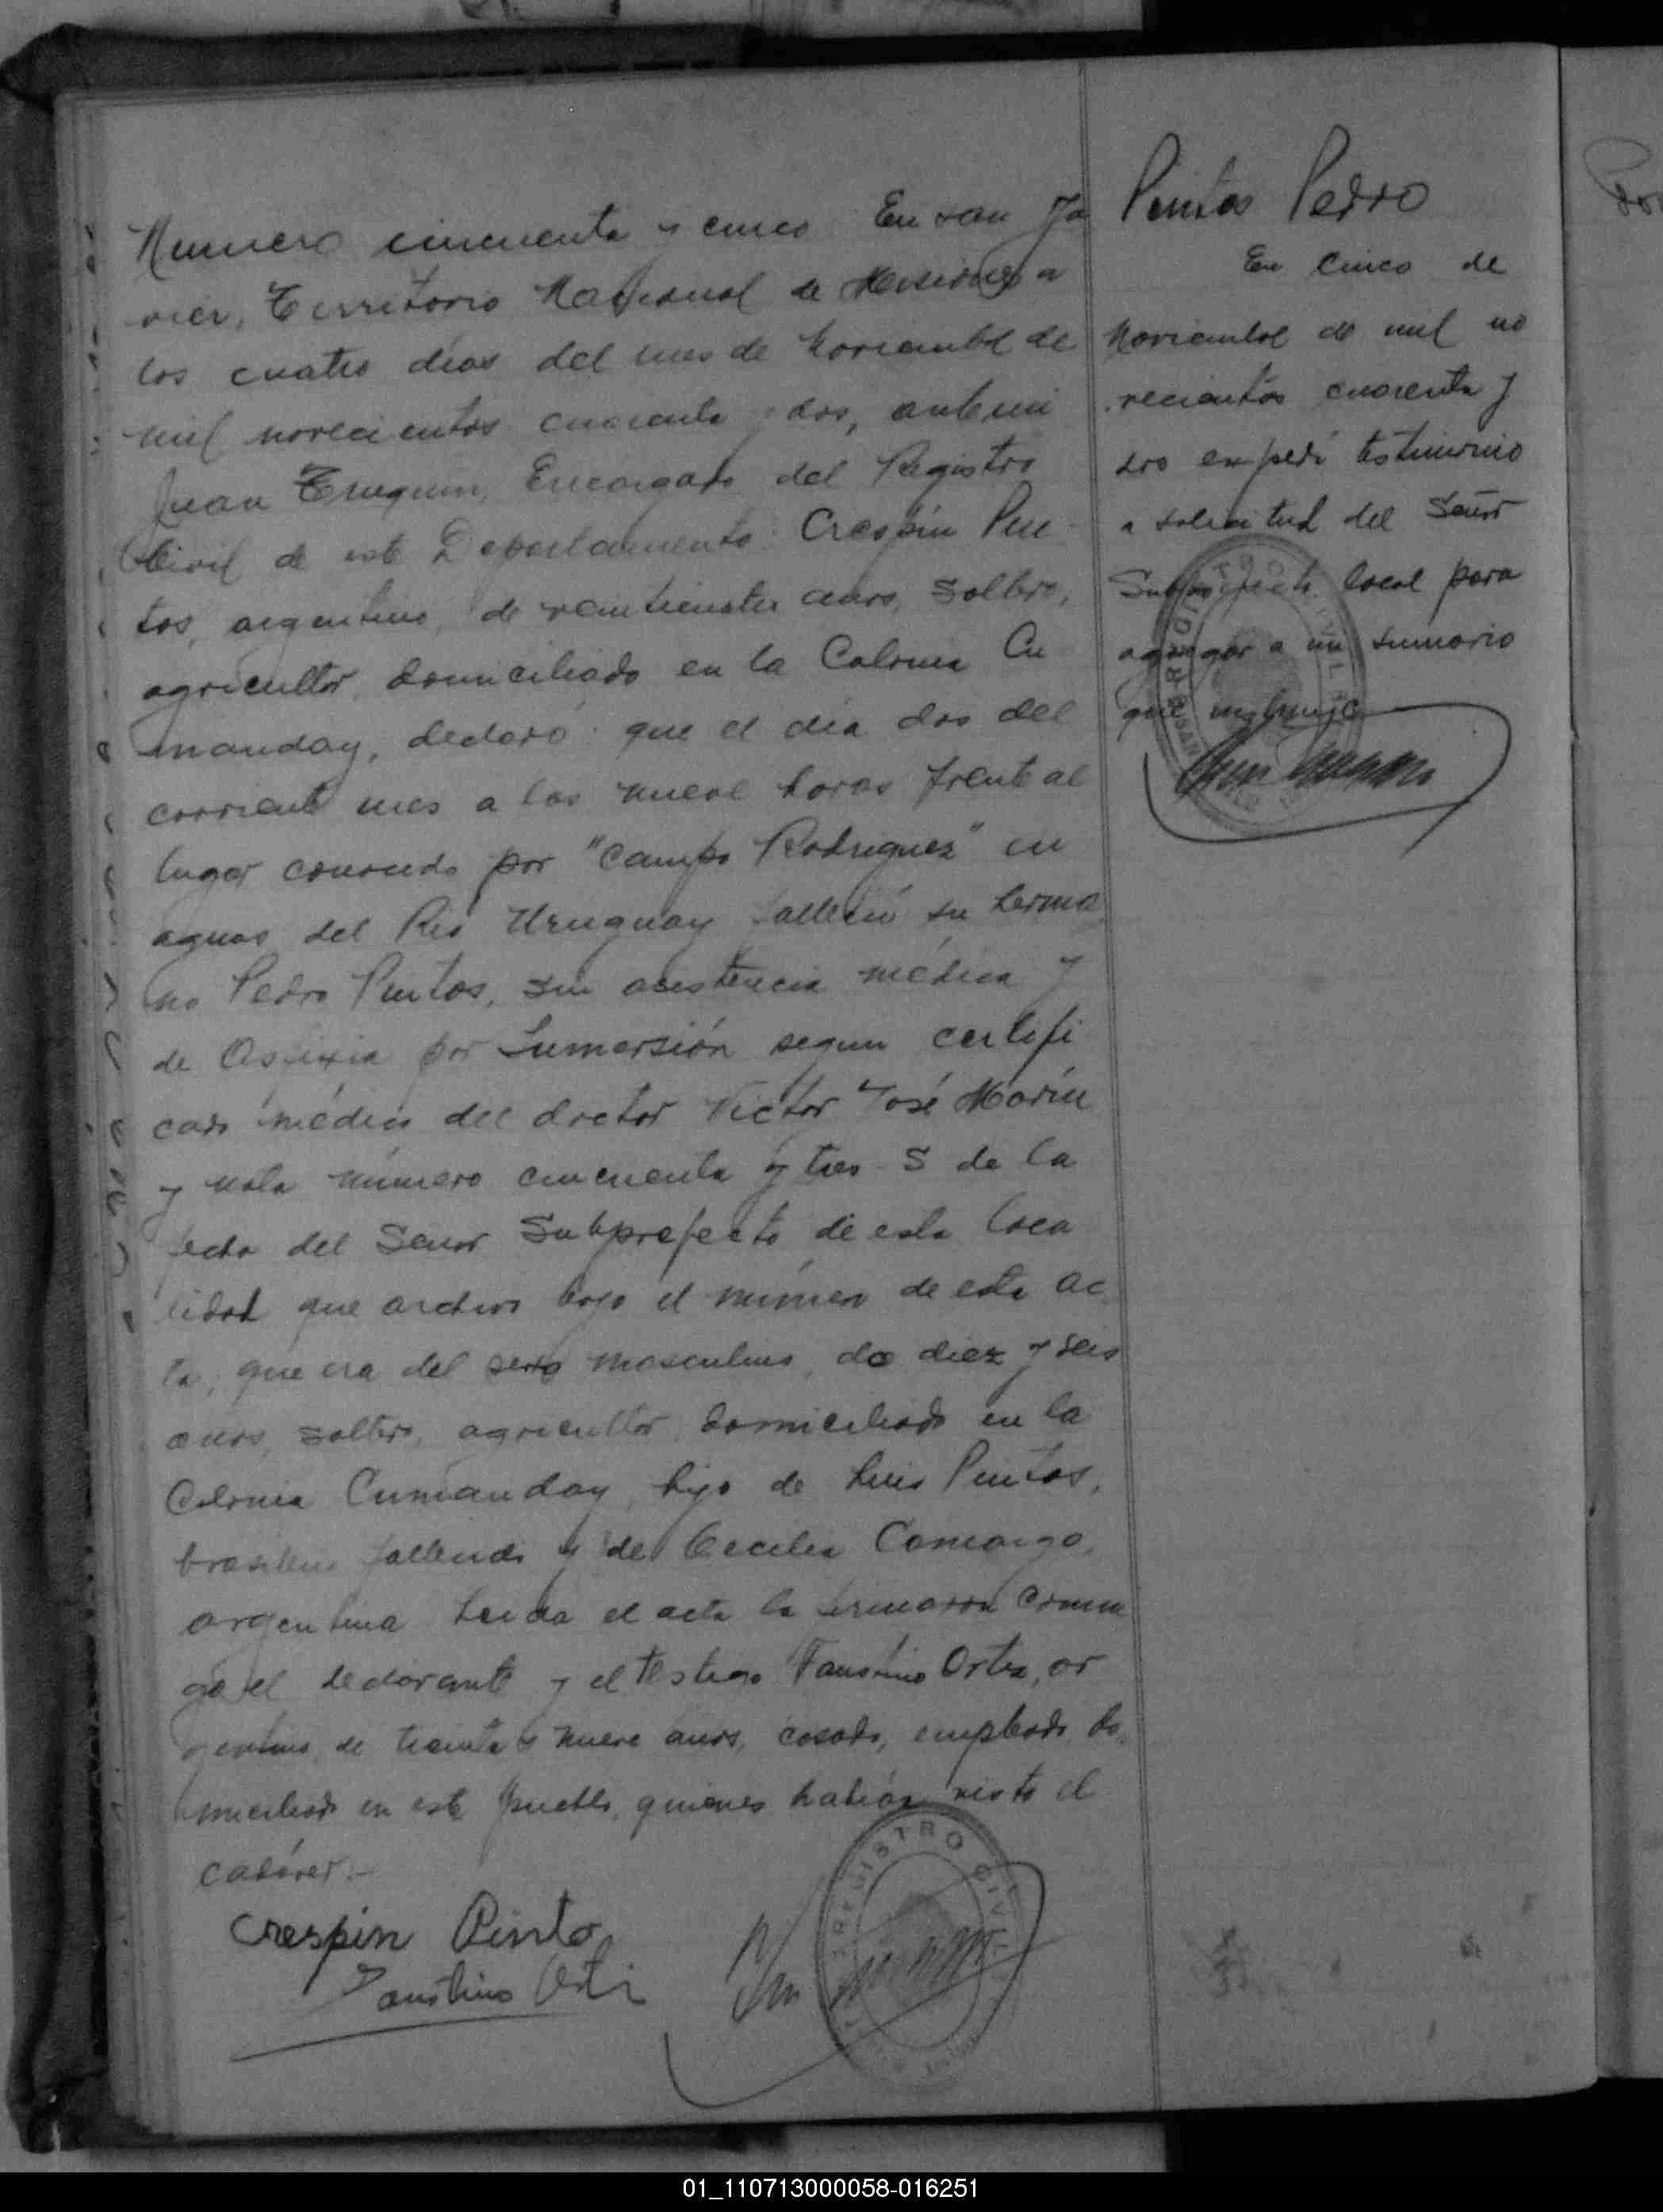 Numero cincuenta y cinco. En San Ja
vier, Territorio Nacional de Misiones a
los cuatro días del mes de Noviembre de
mil novecientos cuarenta y dos, ante mi
Juan Encargado del Registro
Civil de este Departamento: Crespin Pin
tos, argentino, de años, soltero,
agricultor, domiciliado en la Colonia Cu
manday, declaró: que el día dos del
corriente mes a las nueve horas frente al
lugar conocido por "Campo Rodriguez" en
aguas del Rio Uruguay falleció su herma
no Pedro Pintos, sin asistencia médica y
de Asfixia por Sumersión segun certifi
cado médico del doctor Victor José Marín
y nota número cincuenta y tres - S de la
fecha del Señor Subprefecto de esta loca
lidad que archivo bajo el número de esta ac
ta; que era del sexo masculino, de diez y seis
años, soltero, agricultor, domiciliado en la
Colonia Cumanday, hijo de Luis Pintos,
brasilero fallecido y de Cecilia Camargo,
argentina. Leida el acta la firmaron conmi
go el declarante y el testigo Faustino Ortiz, ar
gentino, de treinta y nueve años, casado, empleado, do
miciliado en este pueblo, quienes habian visto el
cadáver.-
Crespin Pinto
Faustino Orti
REGISTRO CIVIL
Pintos Pedro
En cinco de
Noviembre de mil no
vecientos cuarenta y
dos expedí testimonio
a solicitud del Señor
Subprefecto local para
agregar a un sumario
que instruye
REGISTRO CIVIL
01_110713000058-016251